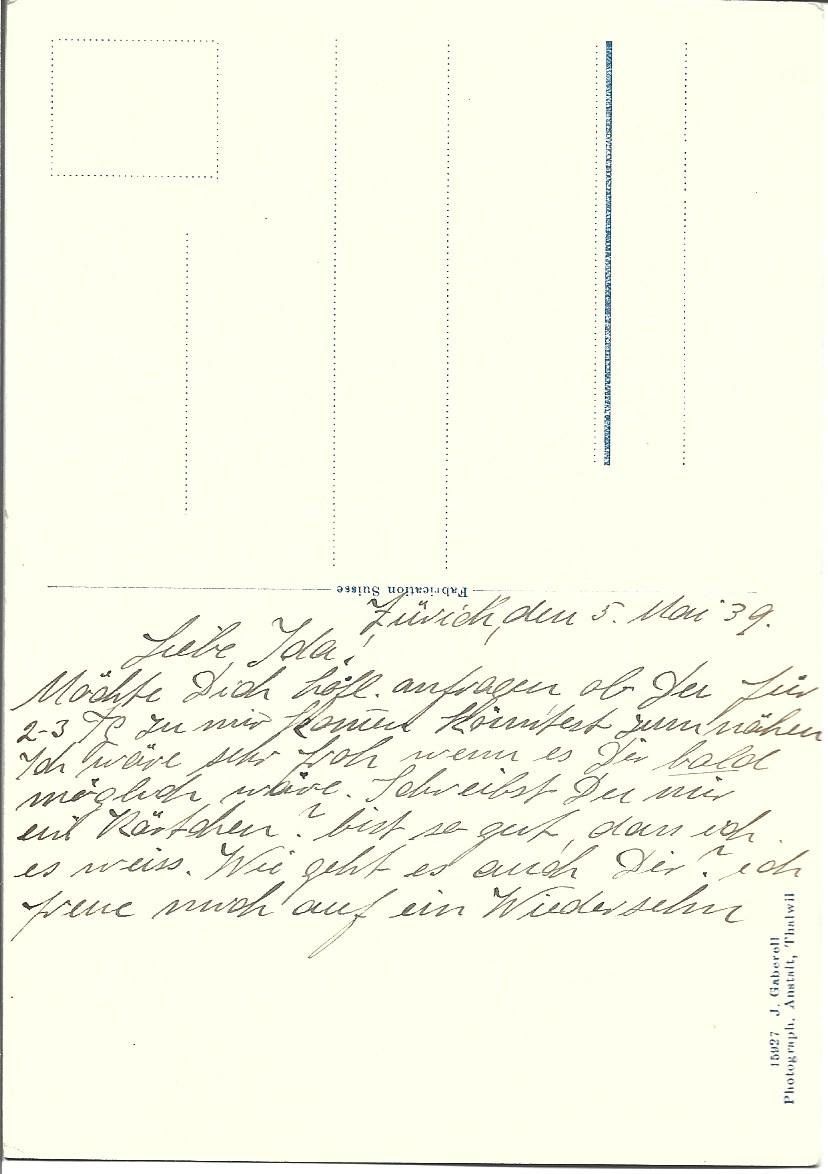 Fabrication Suisse
Zürich, den 5. Mai 39.
Liebe Ida!
Möchte Dich höfl. anfragen ob Du für
2-3 Tg zu mir kom̄en könntest zum nähen
Ich wäre sehr froh wenn es Dir bald
möglich wäre. Schreibst Du mir
ein Kärtchen? bist so gut, dass ich
es weiss. Wie geht es auch Dir? ich
freue mich auf ein Wiedersehn
15927 J. Gaberell
Photograph. Anstalt, Thalwil